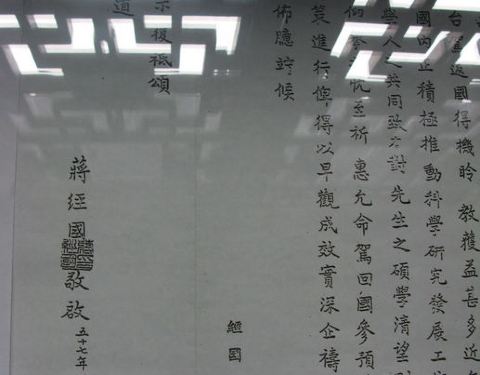 返國得機聆 教獲益甚多近
國內正積極推動科學研究發展工
學人之共同致力對先生之碩學清望
忱至祈 惠允命駕回國參預
策進行俾得以早觀成效實深企禱
佈臆竚候
經國
示復祗頌
道
蔣經國敬啟 五十七年